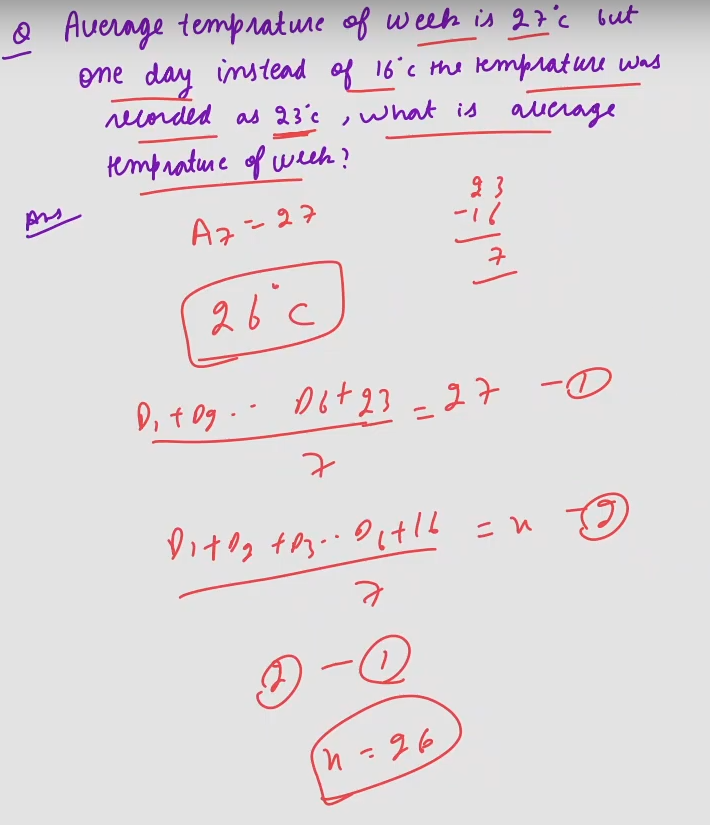 Q Average temprature of week is 27°c but
one day instead of 16°c the temprature was
recorded as 23°c, what is average
temprature of week?
Ans
A7 = 27
23
-16
7
26°c
D1 + D2 .. D6 + 23 = 27 - ①
7
D1 + D2 + D3 .. D6 + 16 = x - ②
7
② - ①
x = 26